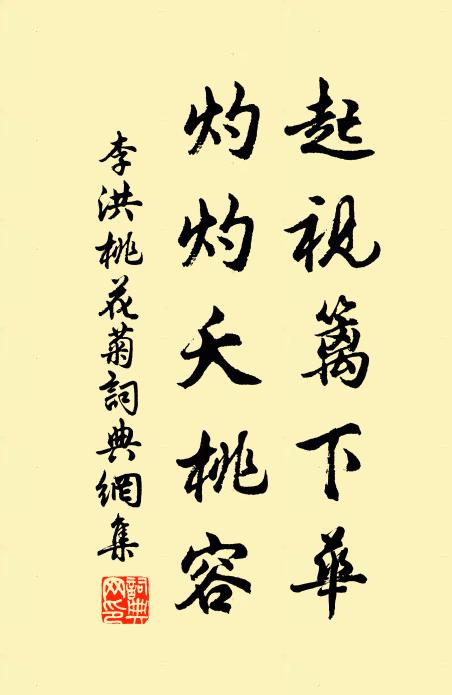 起視籬下華
灼灼夭桃容
李洪桃花菊詞典網集